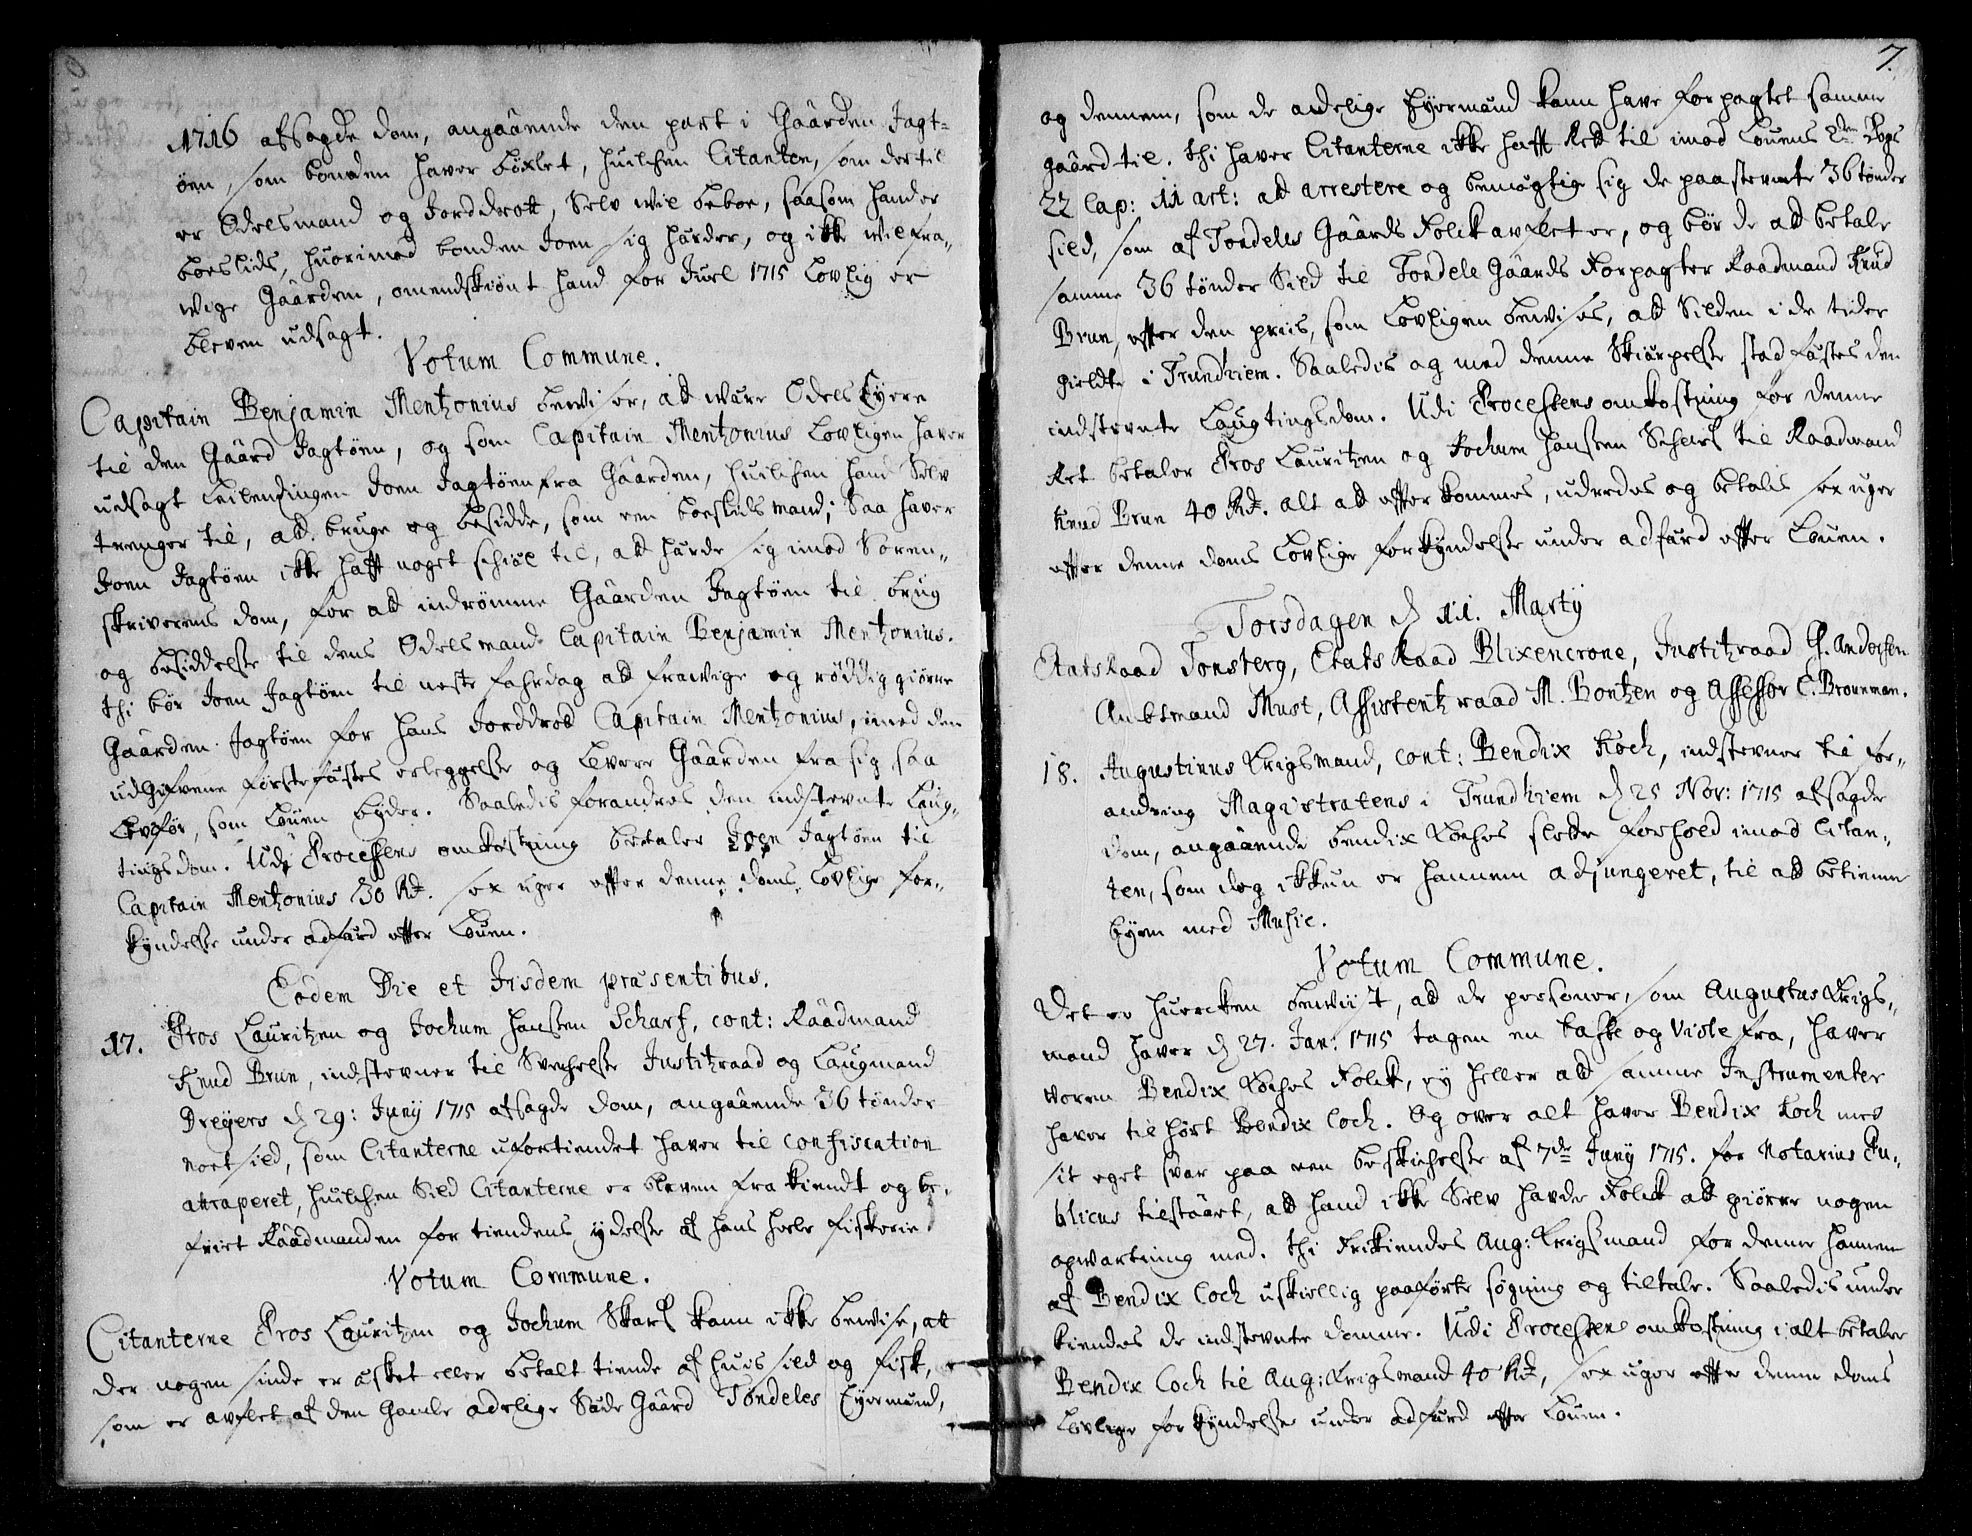 1716 afsagde dom, angaaende den part i Gaarden Jagt-
öen, som bonden haver böxlet, huilchen Citanten, som der til
er Odelsmand og Jorddrott, Selv wil beboe, saasom hand er
boeslids, huorimod bonden Joen sig hærder, og ikke wil fra-
wige Gaarden, omendskiönt hand for Juel 1715 Lovlig er
bleven udsagt.
Votum Commune.
Capitain Benjamin Mentzonius beviser, at være Odels Eyere
til den Gaard Jagtöen, og som Capitain Mentzonius Lovligen haver
udsagt Leilendingen Joen Jagtöen fra Gaarden, huilchen hand Selv
trenger til, at bruge og besidde, som een boeslids mand; Saa haver
Joen Jagtöen ikke hafft noget schiæl til, at hærde sig imod Soren-
skriverens dom, for at indrömme Gaarden Jagtöen til brug
og besiddelse til dens Odelsmand Capitain Benjamin Mentzonius.
thi bör Joen Jagtöen til neste fahrdag at frawige og röddiggiörre
Gaarden Jagtöen for hans Jorddrod Capitain Mentzonius, imod den
udgifvene förstefæstes erleggelse og Levere Gaarden fra sig saa
Lovför, som Louen byder. Saaledis forandres den indstevnte Laug-
tings dom. Udj Processens omkostning betaler Joen Jagtöen til
Capitain Mentzonius 30 Rd. sex uger effter denne doms Lovlige for-
kyndelse under adfærd effter Louen.
Eodem Die et Iisdem præsentibus.
17. Pros Lauritzen og Jochum Hanssen Scharf, cont: Raadmand
Knud Brun, indstevner til Svechelse Justitzraad og Laugmand
Dreyers d 29: Junij 1715 afsagde dom, angaaende 36 tönder
noet sild, som Citanterne ufortiendet haver til confiscation
attraperet, huilchen Sild Citanterne er bleven fra kiendt og be-
friet Raadmanden for tiendens ydelse af hans heele fiskerie.
Votum Commune.
Citanterne Pros Lauritzen og Jochum Skarf kann ikke bevise, at
der nogen sinde er æsket eller betalt tiende af huis sild og fisk,
som er avflet af den gamle adelige Sæde Gaard Tondeles Eyermænd,
7.
og dennem, som de adelige Eyermænd kann have forpagtet samme
gaard til. thi haver Citanterne ikke hafft Rett til imod Louens 2den Bogs
22 Cap: 11 art: at arrestere og bemögtige sig de paastevnte 36 tönder
sild, som af Tondeles Gaards Folck avflet er, og bör de at betale
samme 36 tönder Sild til Tondele Gaards Forpagter Raadmand Knud
Brun, effter den priis, som Lovligen bevises, at Silden i de tider
gieldte i Trundhiem. Saaledis og med denne Skiærpelse stadfæstes den
indstevnte Laugtingsdom. Udi Processens omkostning for denne
Ret betaler Pros Lauritzen og Jochum Hanssen Scharf til Raadmand
Knud Brun 40 Rd. alt at effterkommes, udredes og betalis sex uger
effter denne doms Lovlige forkyndelse under adfærd effter Louen.
Torsdagen d 11. Martij
EtatsRaad Tonsberg, Etats Raad Blixencrone, Justitzraad P. Anderssen
Ambtmand Must, Assistentzraad M. Bontzen og Assessor C. Brounman.
18. Augustinus Krigsmand, cont: Bendix Koch, indstevner til for-
andring Magistratens i Trundhiem d 25 Nov: 1715 afsagde
dom, angaaende Bendix Koches slette forhold imod Citan-
ten, som dog ikkun er hannem adjungeret, til at betienne
byen med Musie.
Votum Commune.
Det er huercken beviist, at de personer, som Augustus Krigs-
mand haver d 27. Jan: 1715 tagen en taske og Viole fra, haver
voren Bendix Koches Folck, ey heller at samme Instrumenter
haver tilhört Bendix Coch. Og over alt haver Bendix Koch med
sit eget svar paa een beskichelse af 7de Junij 1715. for Notarius Pu-
blicus tilstaaet, at hand ikke Selv havde Folck at giörre nogen
opvartning med. thi Frikiendes Aug: Krigsmand for denne hannem
af Bendix Coch uskiellig paaförte sögning og tiltale. Saaledis under
kiendes de indstevnte domme. Udi Processens omkostning i alt betaler
Bendix Coch til Aug: Krigsmand 40 Rd, sex uger effter denne doms
Lovlige forkyndelse under adfærd effter Louen.